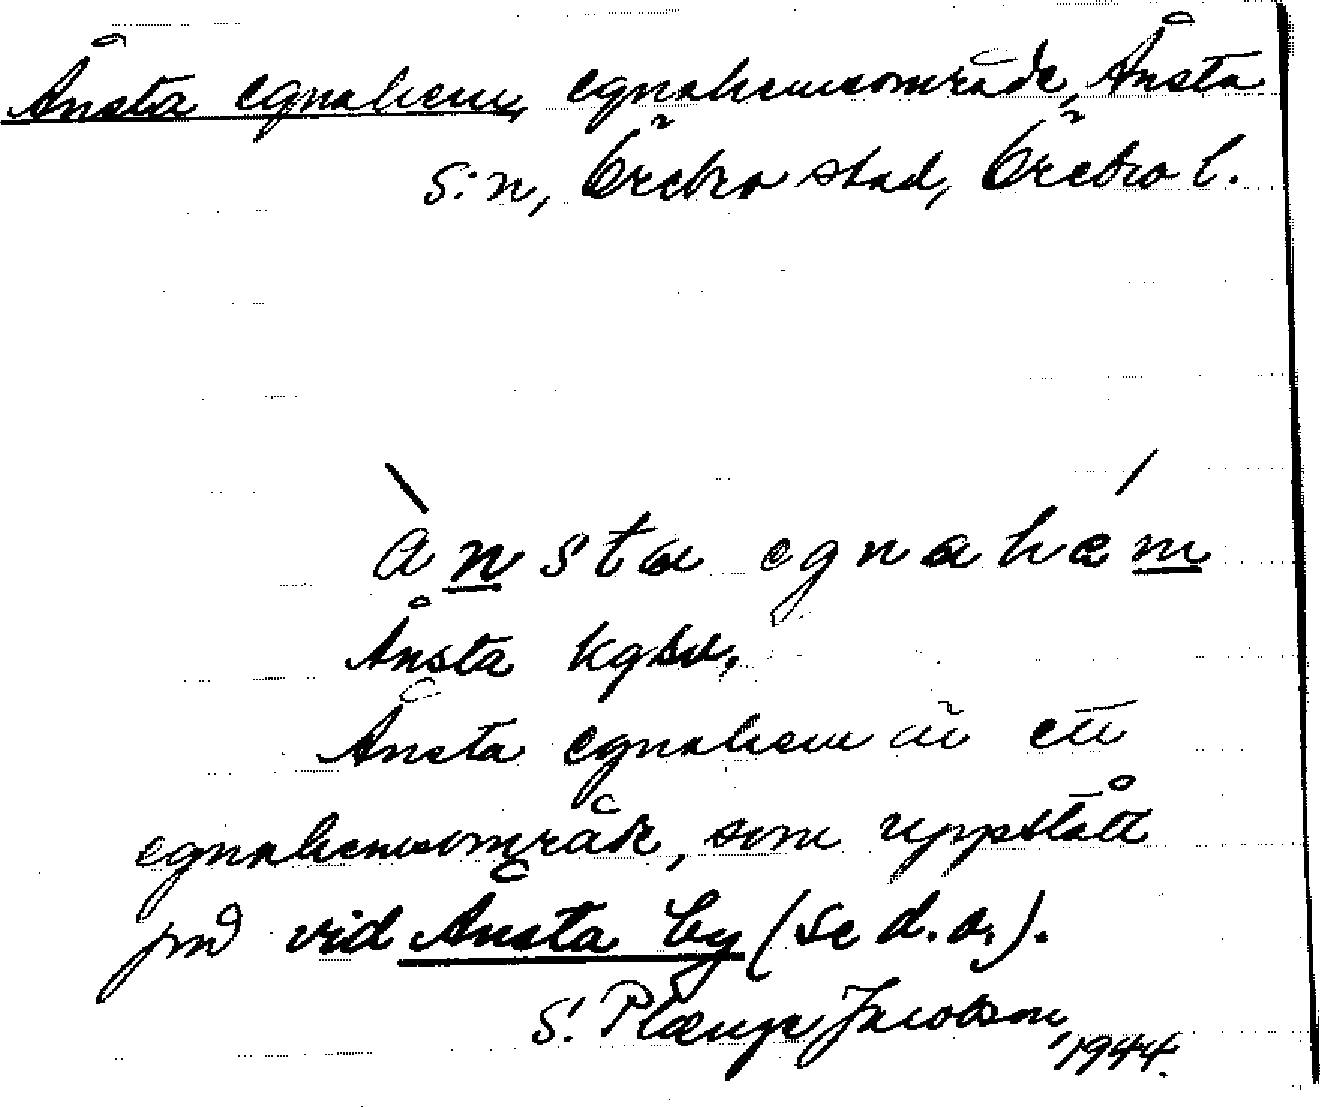 Ånsta egnahem, egnahemsområde, Ånsta
s:n, Örebro stad, Örebro l.
ànsta egnahém
Ånsta kgbd.
Ånsta egnahem är ett
egnahemsområde, som uppstått
på vid Ånsta by (se d.o.).
S. Plænge Jacobson,
1944.